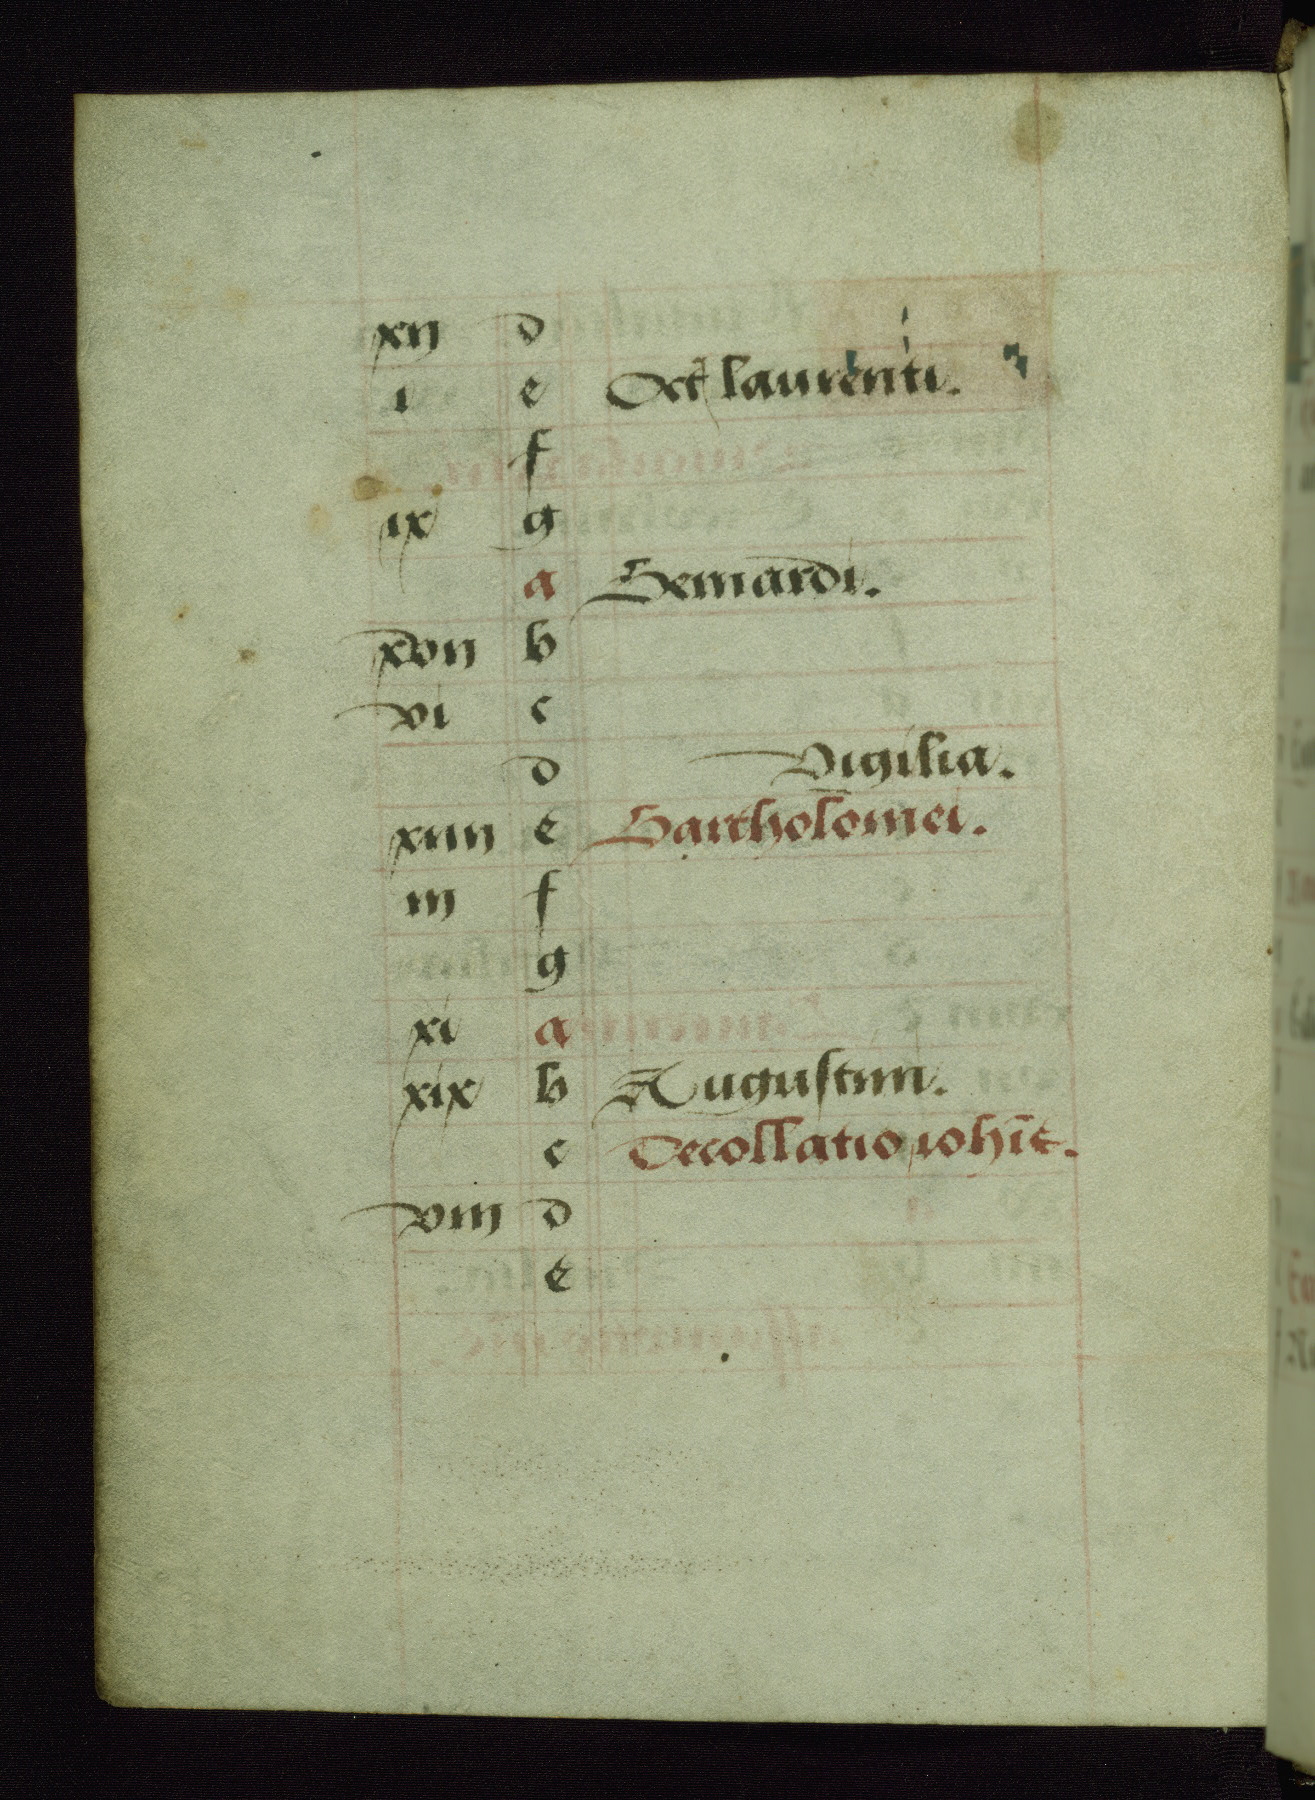 xij d
i e Oct laurenti.
f
ix g
a Bernardi.
xvij b
vi c
d Vigilia.
xiiij e Bartholomei.
iij f
g
xi a
xix b Augustini.
c Decollatio iohis.
viij d
e